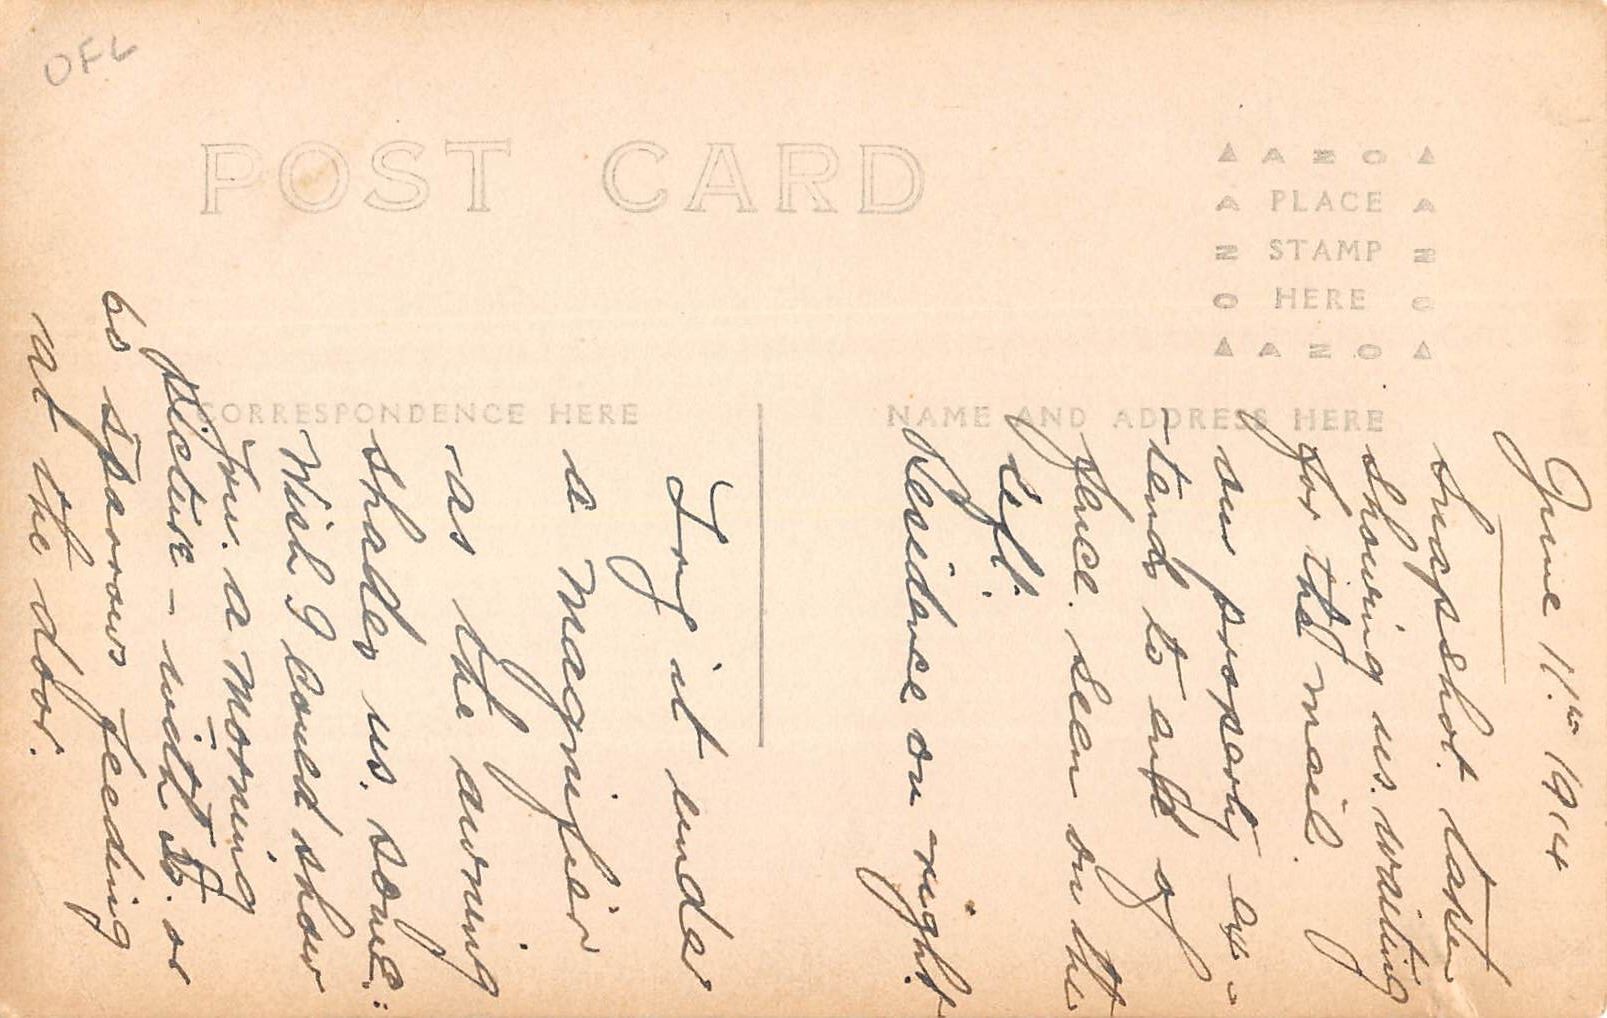 OFL
POST CARD
▲ AZO ▲
A PLACE A
Z STAMP Z
O HERE O
▲ AZO ▲
CORRESPONDENCE HERE
NAME AND ADDRESS HERE
June 11th 1914
Snapshot taken
showing us. waiting
for the mail.
our property ex-
-tends to end of
fence. seen on the
left.
Residence on right.
Try it under
a Magnifier
as the awning
shades us. some:
Wish I could show
You. a Morning
picture - with 50. or
60 sparrows feeding
at the door.